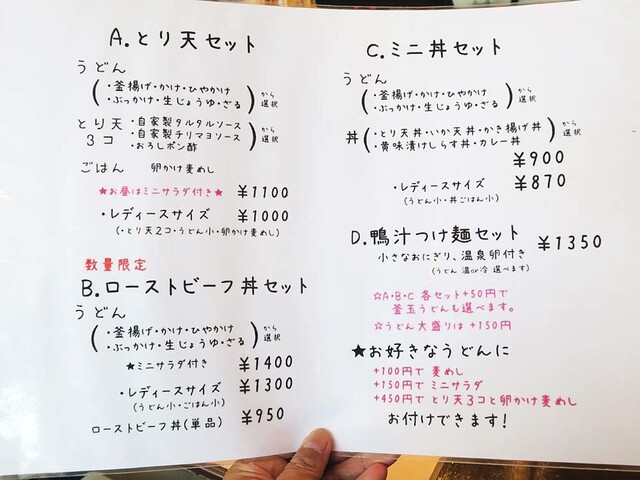 A.とり天セット
うどん
(・釜揚げ・かけ・ひやかけ
・ぶっかけ・生じょうゆ・ざる)から選択
とり天3コ
(・自家製タルタルソース
・自家製チリマヨソース
・おろしポン酢)から選択
ごはん 卵かけ麦めし
★お昼はミニサラダ付き★ ¥1100
・レディースサイズ ¥1000
(・とり天2コ・うどん小・卵かけ麦めし)
数量限定
B.ローストビーフ丼セット
うどん
(・釜揚げ・かけ・ひやかけ
・ぶっかけ・生じょうゆ・ざる)から選択
★ミニサラダ付き ¥1400
・レディースサイズ ¥1300
(うどん小・ごはん小)
ローストビーフ丼(単品) ¥950
C.ミニ丼セット
うどん
(・釜揚げ・かけ・ひやかけ
・ぶっかけ・生じょうゆ・ざる)から選択
丼(・とり天丼・いか天丼・かき揚げ丼
・黄味漬けしらす丼・カレー丼)から選択
¥900
・レディースサイズ ¥870
(うどん小・丼ごはん小)
D.鴨汁つけ麺セット ¥1350
小さなおにぎり、温泉卵付き
(うどん 温or冷 選べます)
☆A・B・C 各セット+50円で
釜玉うどんも選べます。
☆うどん大盛りは +150円
★お好きなうどんに
+100円で 麦めし
+150円で ミニサラダ
+450円で とり天3コと卵かけ麦めし
お付けできます!